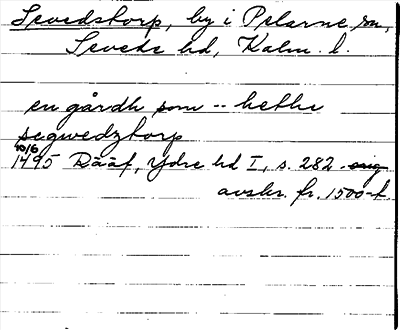 Sevedstorp, by i Pelarne sn,
Sevede hd, Kalm. l.
en gårdh som -- hethe
segwedztorp
10/6
1495 Rääf, Ydre hd I, s. 282. orig
avskr. fr. 1500-t.